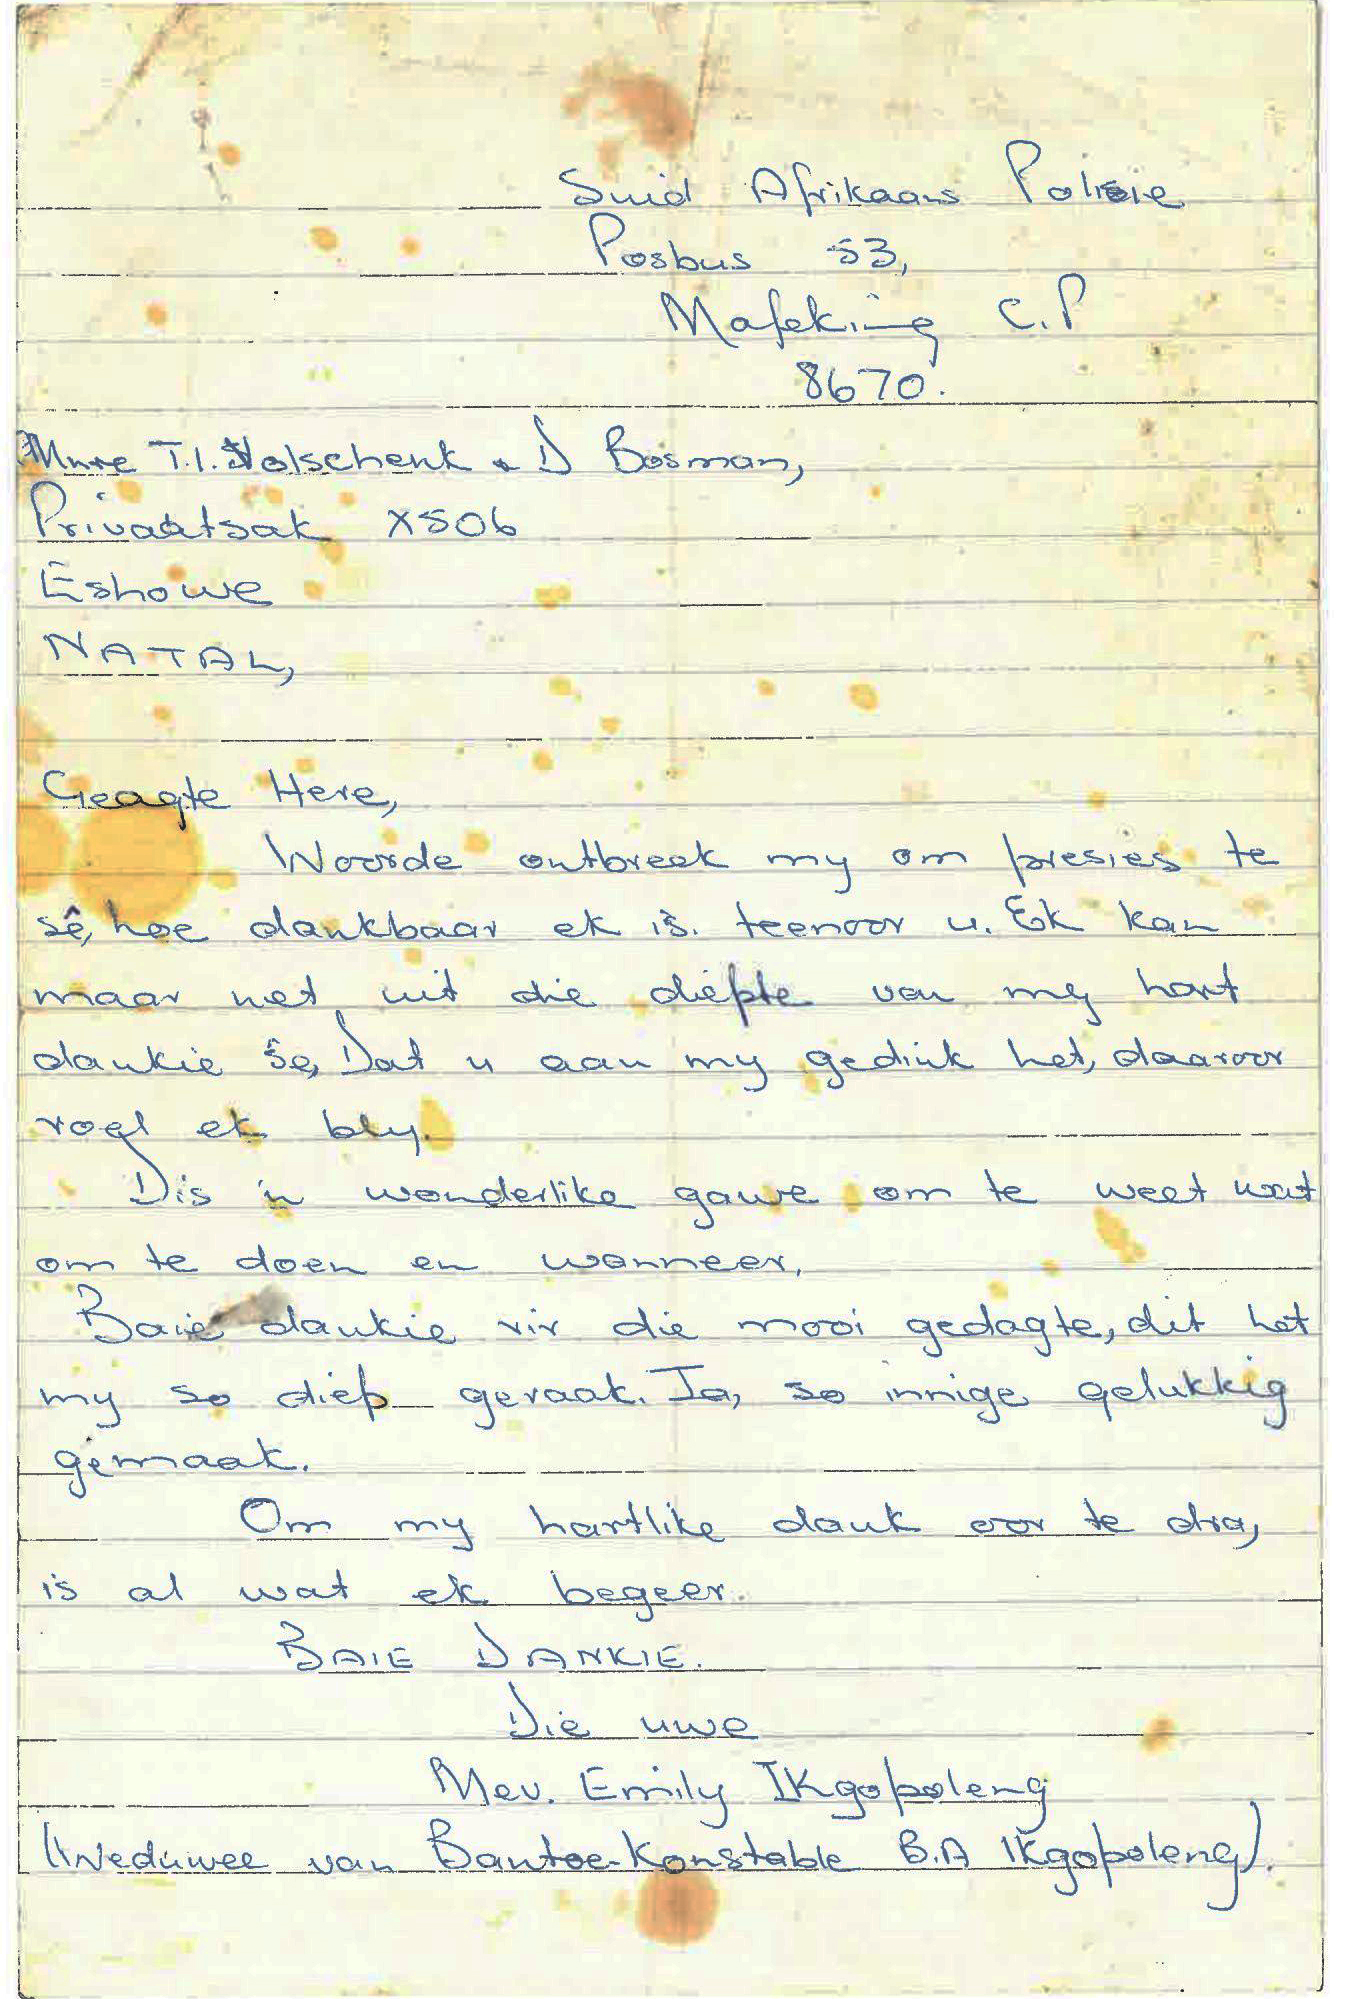 Suid Afrikaans Polisie
Posbus 53,
Mafeking C.P
8670.
Mnre T.I. Volschenk & D Bosman,
Privaatsak X506
Eshowe
NATAL,
Geagte Here,
Woorde ontbreek my om presies te
sê, hoe dankbaar ek is. teenoor u. Ek kan
maar net uit die diepte van my hart
dankie sê, Dat u aan my gedink het, daarvoor
voel ek bly.
Dis 'n wonderlike gawe om te weet wat
om te doen en wanneer.
Baie dankie vir die mooi gedagte, dit het
my so diep geraak. Ja, so innige gelukkig
gemaak.
Om my hartlike dank oor te dra,
is al wat ek begeer.
BAIE DANKIE.
Die uwe
Mev. Emily IKgopoleng
(Weduwee van Bantoe-Konstable B.A IKgopoleng).